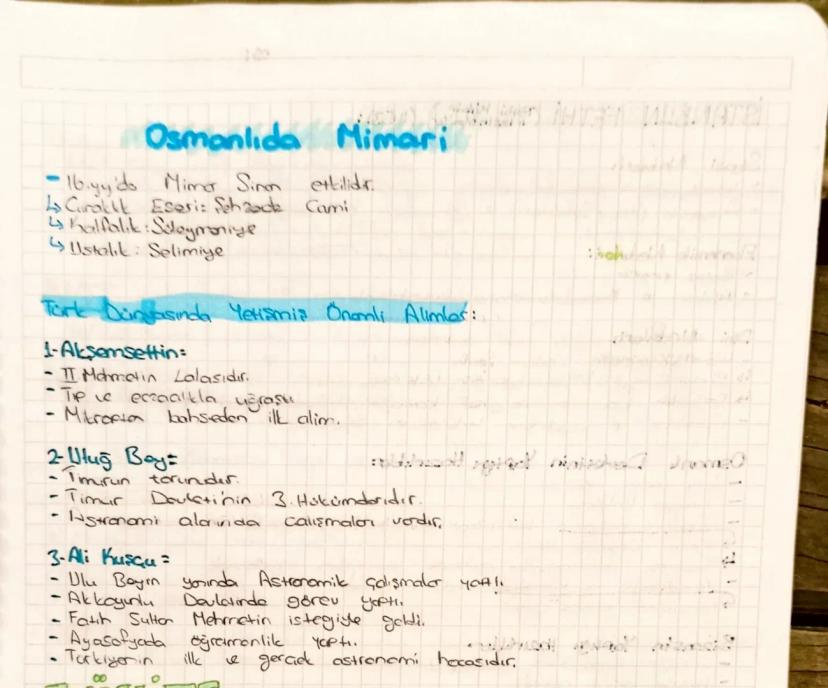 Osmanlıda Mimari
- 16.yy'da Mimar Sinan etkilidir.
↳ Çıraklık Eseri: Şehzade Cami
↳ Kalfalık: Süleymaniye
↳ Ustalık: Selimiye
Türk Dünyasında Yetişmiş Önemli Alimler:
1-Akşemsettin:
- II Mehmetin Lalasıdır.
- Tıp ve eczacılıkla uğraştı.
- Mikroptan bahseden ilk alim.
2-Uluğ Bey:
- Timurun torunudur.
- Timur Devleti'nin 3. Hükümdarıdır.
- Astronomi alanında çalışmaları vardır.
3-Ali Kuşçu:
- Ulu Beyin yanında Astronomik çalışmalar yaptı.
- Akkoyunlu Devletinde görev yaptı.
- Fatih Sultan Mehmetin isteğiyle geldi.
- Ayasofyada öğretmenlik yaptı.
- Türkiyenin ilk ve gerçek astronomi hocasıdır.